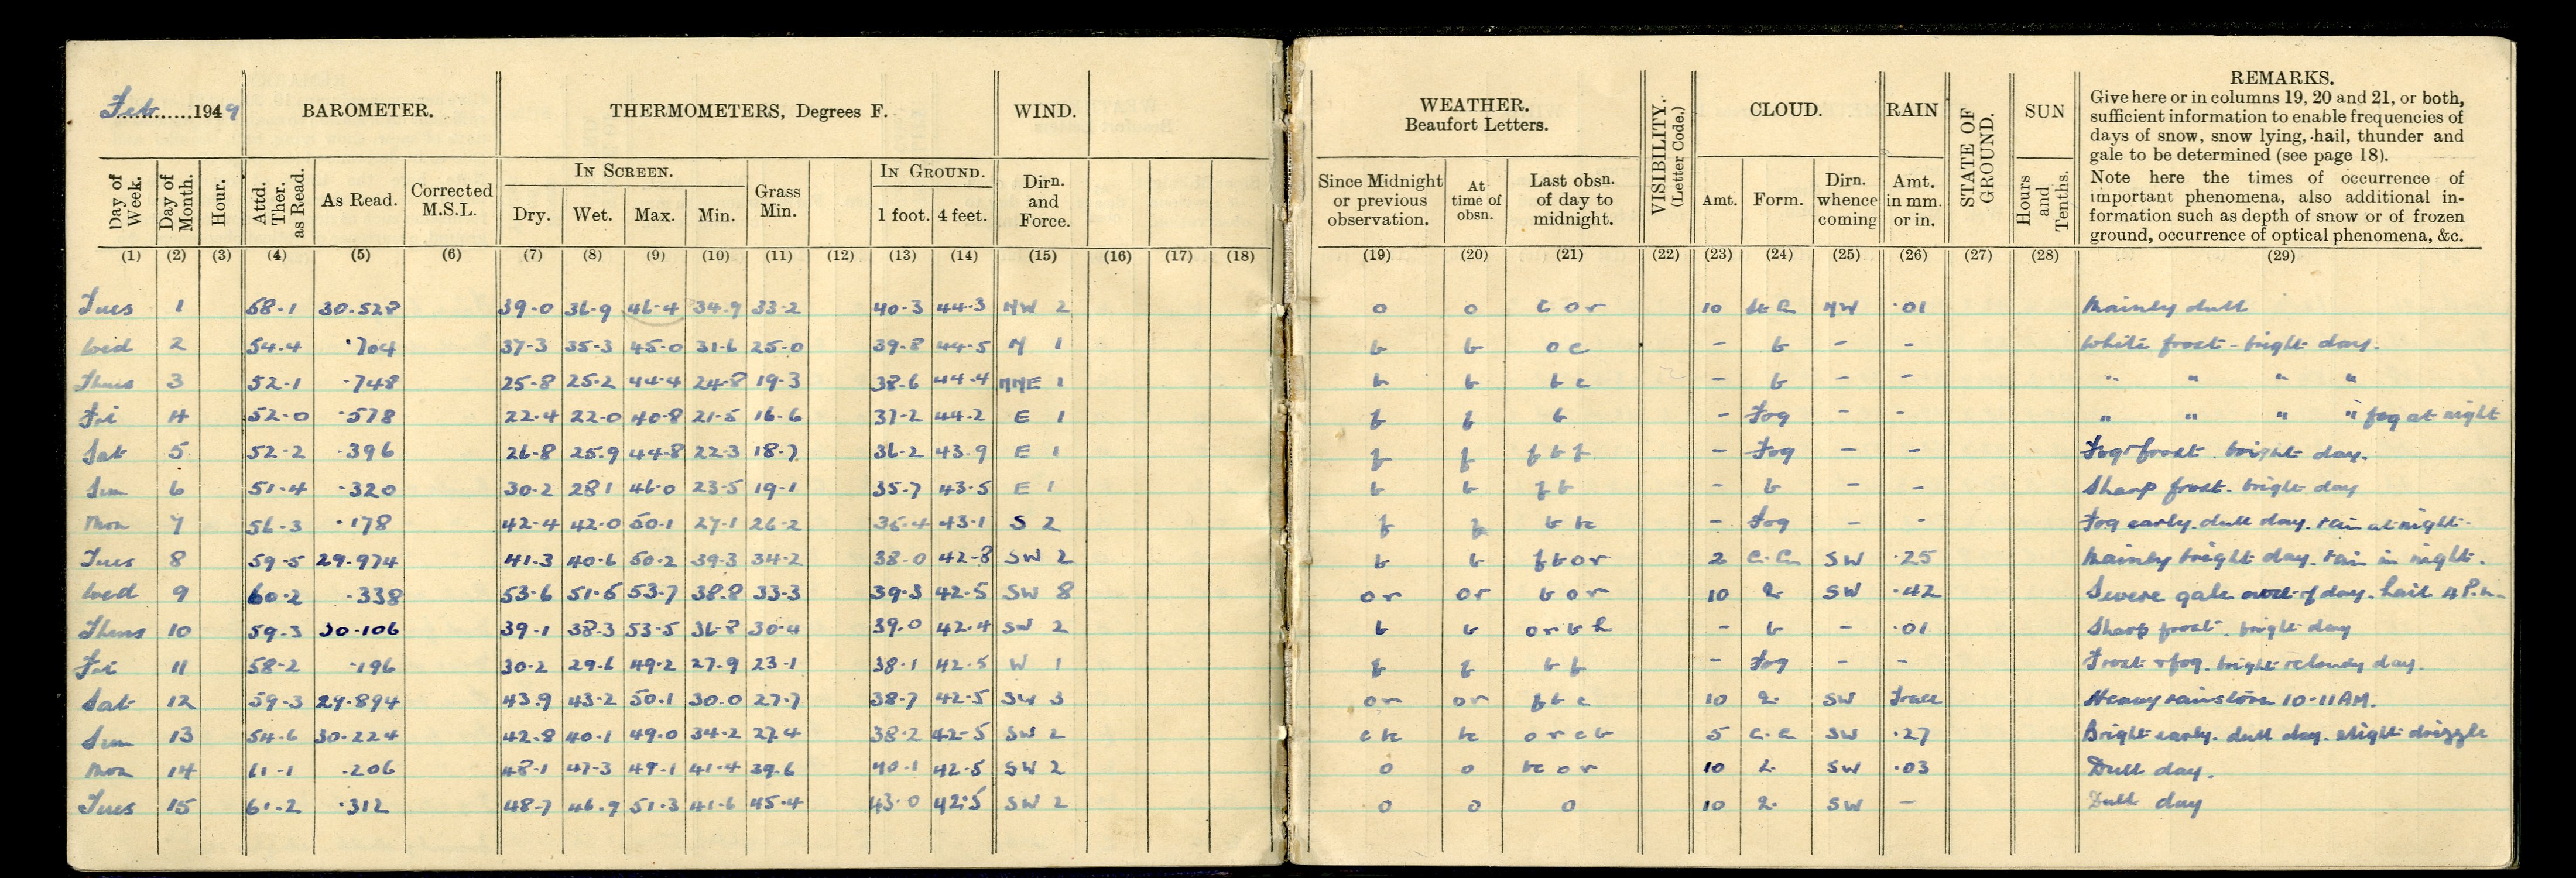 Feb 1949 BAROMETER. THERMOMETERS, Degrees F. WIND. WEATHER. Beaufort Letters. VISIBILITY. (Letter Code.) CLOUD. RAIN STATE OF GROUND. SUN REMARKS.
Give here or in columns 19, 20 and 21, or both,
sufficient information to enable frequencies of
days of snow, snow lying, hail, thunder and
gale to be determined (see page 18).
Note here the times of occurrence of
important phenomena, also additional in-
formation such as depth of snow or of frozen
ground, occurrence of optical phenomena, &c.
Day of Week. Day of Month. Hour. Attd. Ther. as Read. As Read. Corrected M.S.L. IN SCREEN. Dry. Wet. Max. Min. Grass Min. IN GROUND. 1 foot. 4 feet. Dirn. and Force. Since Midnight or previous observation. At time of obsn. Last obsn. of day to midnight. Amt. Form. Dirn. whence coming Amt. in mm. or in. Hours and Tenths.
(1) (2) (3) (4) (5) (6) (7) (8) (9) (10) (11) (12) (13) (14) (15) (16) (17) (18) (19) (20) (21) (22) (23) (24) (25) (26) (27) (28) (29)
Tues 1 58.1 30.528 39.0 36.9 46.4 34.9 33.2 40.3 44.3 NW 2 o o c o r 10 NW .01 Mainly dull
Wed 2 54.4 .704 37.3 35.3 45.0 31.6 25.0 39.8 44.5 N 1 b b o c - b - - White frost - bright day.
Thurs 3 52.1 .748 25.8 25.2 44.4 24.8 19.3 38.6 44.4 NNE 1 b b b c - b - - " " " "
Fri 4 52.0 .578 22.4 22.0 40.8 21.5 16.6 37.2 44.2 E 1 f f b - Fog - - " " " " fog at night
Sat 5 52.2 .396 26.8 25.9 44.8 22.3 18.7 36.2 43.9 E 1 f f f b f - Fog - - Fog & frost. bright day.
Sun 6 51.4 .320 30.2 28.1 46.0 23.5 19.1 35.7 43.5 E 1 b b f b - b - - Sharp frost. bright day
Mon 7 56.3 .178 42.4 42.0 50.1 27.1 26.2 36.4 43.1 S 2 f f b bc - Fog - - Fog early. dull day. rain at night.
Tues 8 59.5 29.974 41.3 40.6 50.2 39.3 34.2 38.0 42.8 SW 2 b b f b o r 2 SW .25 Mainly bright day. rain in night.
Wed 9 60.2 .338 53.6 51.5 53.7 38.8 33.3 39.3 42.5 SW 8 o r o r b o r 10 SW .42 Severe gale most of day. hail 4 P.m.
Thurs 10 59.3 30.106 39.1 38.3 53.5 36.8 30.4 39.0 42.4 SW 2 b b o r b h - b - .01 Sharp frost. bright day
Fri 11 58.2 .196 30.2 29.6 49.2 27.9 23.1 38.1 42.5 W 1 f f b f - Fog - - Frost & fog. bright & cloudy day.
Sat 12 59.3 29.894 43.9 43.2 50.1 30.0 27.7 38.7 42.5 SW 3 o r o r f b c 10 SW Trace Heavy rainstorm 10-11 AM.
Sun 13 54.6 30.224 42.8 40.1 49.0 34.2 27.4 38.2 42.5 SW 2 c bc bc o r c b 5 SW .27 Bright early. dull day. slight drizzle
Mon 14 61.1 .206 48.1 47.3 49.1 41.4 39.6 40.1 42.5 SW 2 o o bc o r 10 SW .03 Dull day.
Tues 15 61.2 .312 48.7 46.9 51.3 41.6 45.4 43.0 42.5 SW 2 o o o 10 SW - Dull day